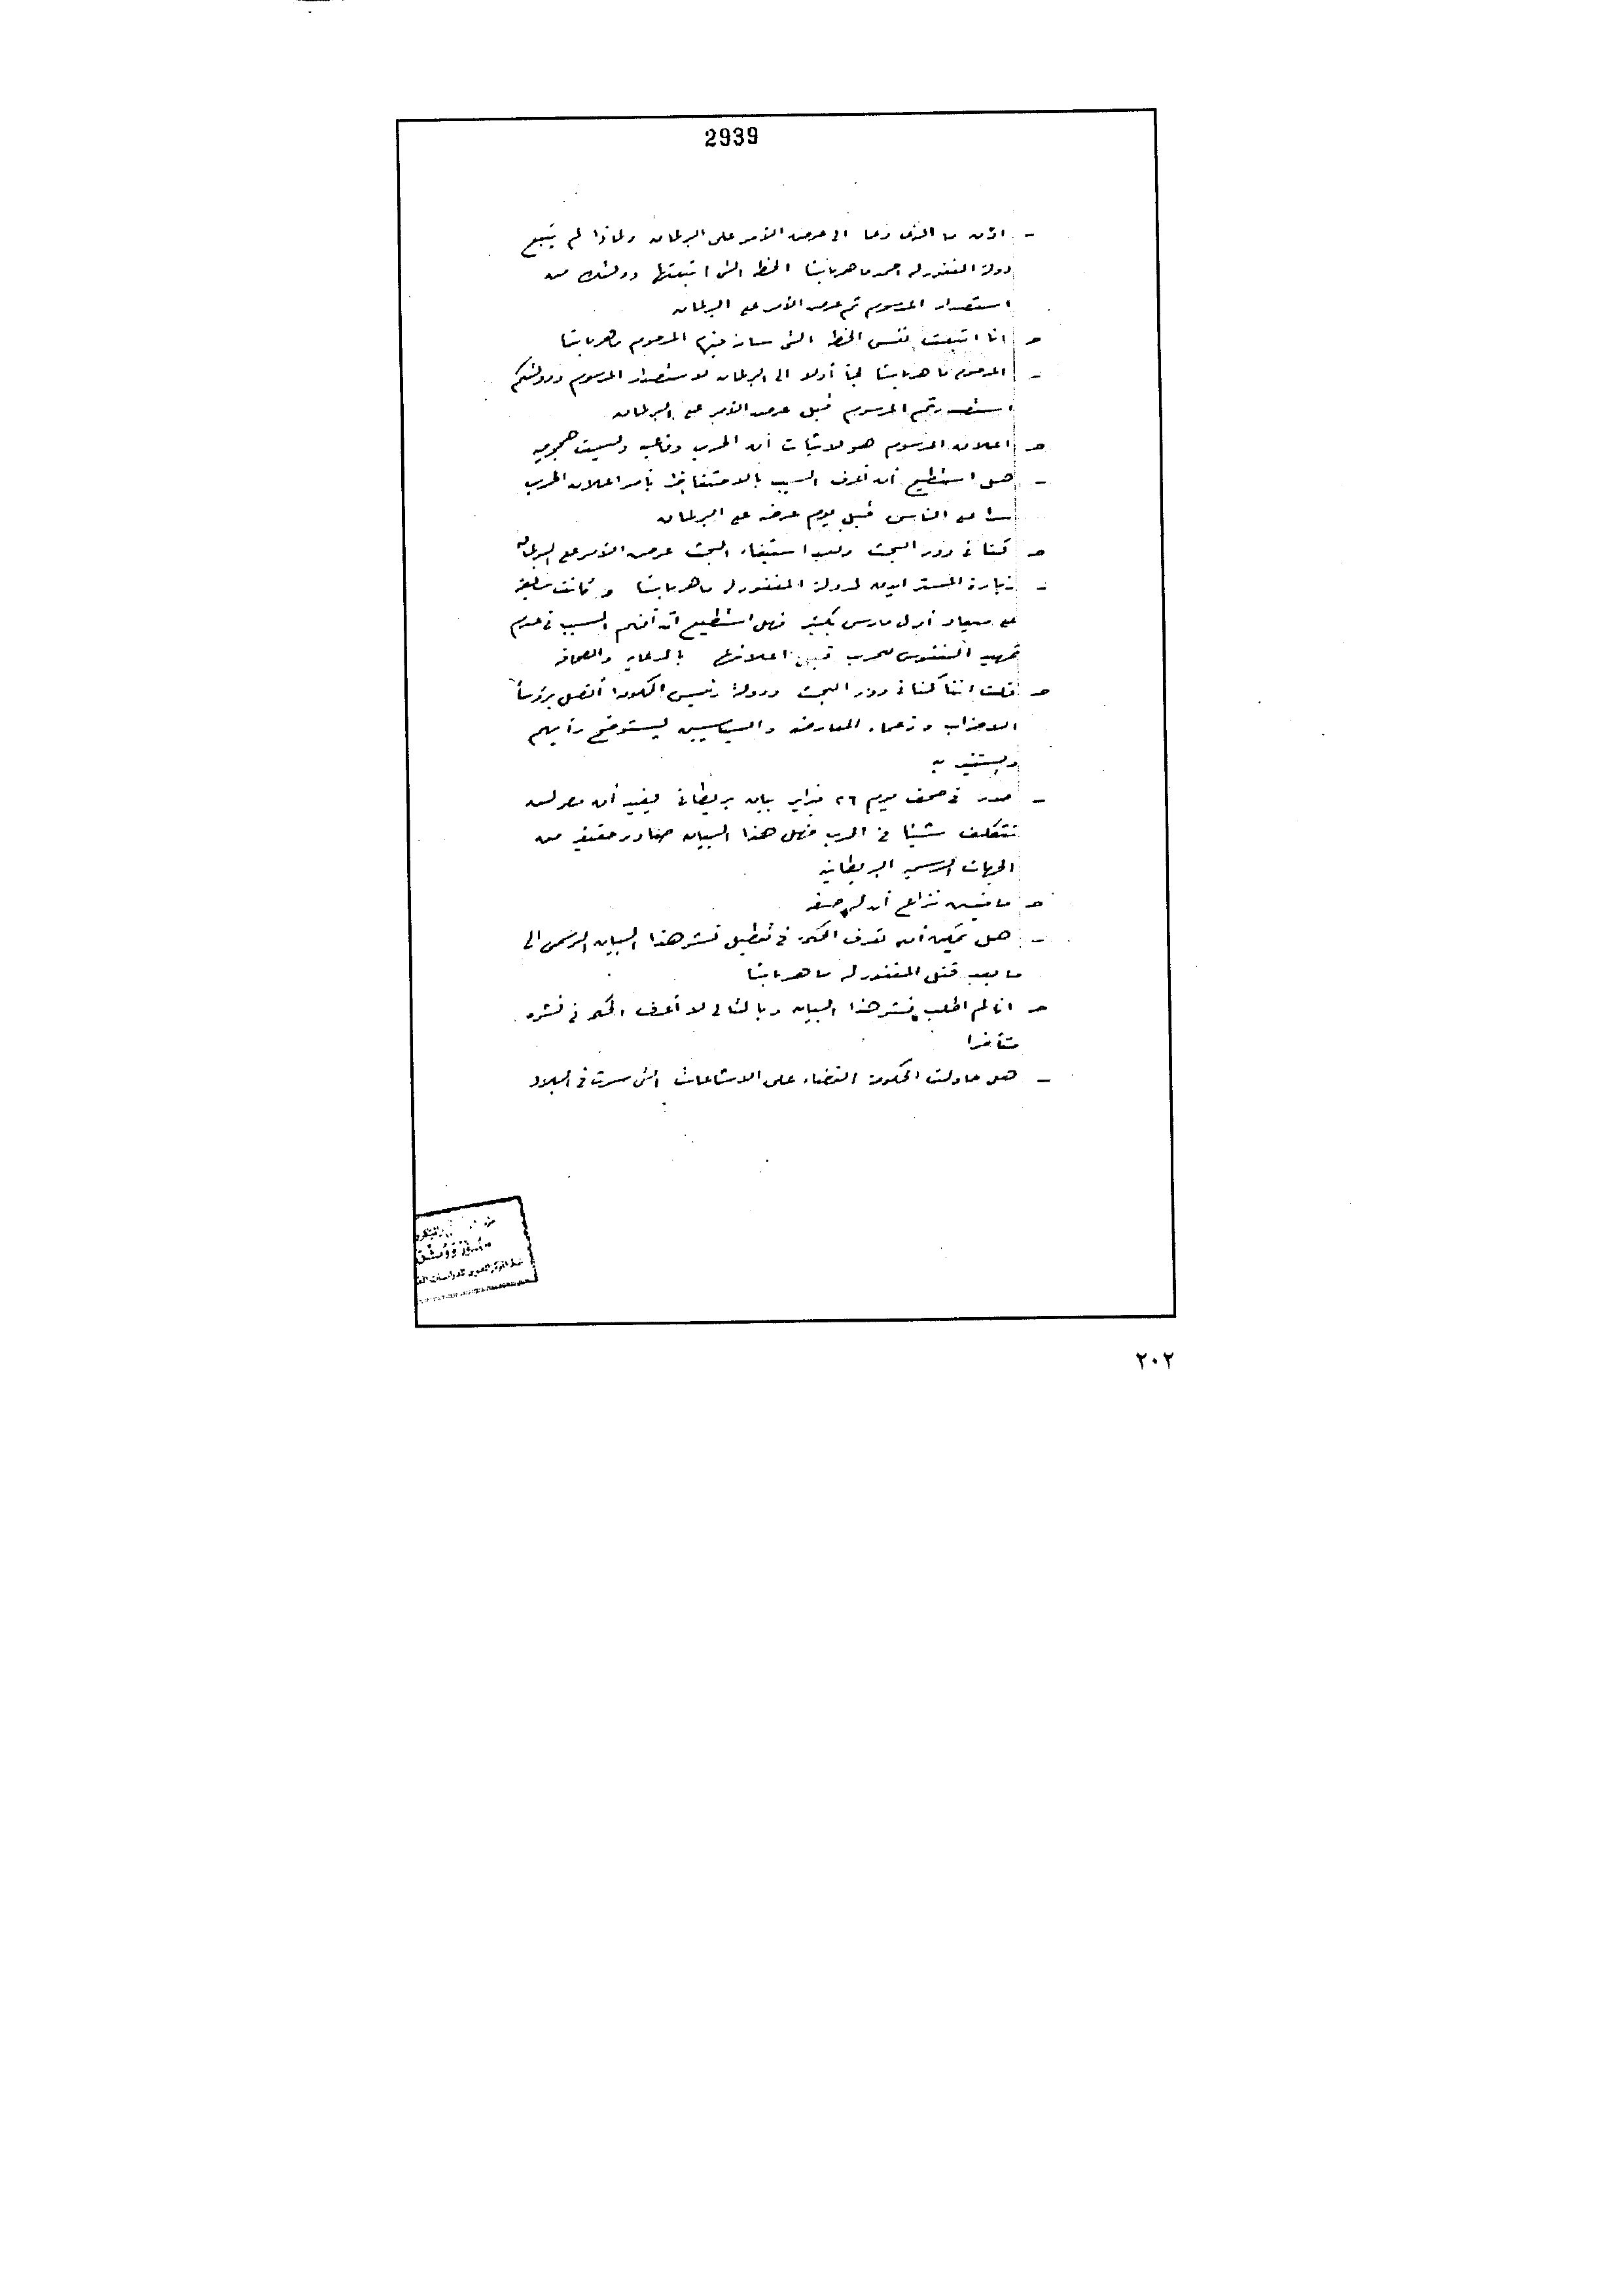 2939
- اذن ما الذى دعا الى عرض الأمر على البرلمان ولماذا لم يتبع
دولة المغفور له احمد ماهر باشا الخطة التى اتبعتها دولتك من
استصدار المرسوم ثم عرض الأمر على البرلمان
ـ انا اتبعت نفس الخطة التى سار فيها المرحوم ماهر باشا
- المرحوم ماهر باشا لجأ أولا الى البرلمان لاستصدار المرسوم ودولتكم
استصدرتم المرسوم قبل عرض الأمر على البرلمان
ـ اعلان المرسوم هو لاثبات أن الحرب دفاعية وليست هجومية
- هل استطيع أن أعرف السبب بالاحتفاظ بأمر اعلان الحرب
سرا عن الناس قبل يوم عرضه على البرلمان
ـ كنا فى دور البحث وبعد استيفاء البحث عرض الأمر على البرلمان
- زيارة المستر ايدن لدولة المغفور له ماهر باشا وكانت سابقة
على ميعاد أول مارس بكثير فهل استطيع أن أفهم السبب فى عدم
تمهيد النفوس للحرب قبل اعلانها بالدعاية والصحافة
ـ قلت اننا كنا فى دور البحث ودولة رئيس الحكومة اتصل برؤساء
الاحزاب وزعماء المعارضة والسياسيين ليستوضح رأيهم
ويستنير به
- صدر فى صحف يوم ٢٦ فبراير بيان بريطانى يفيد أن مصر لن
تتكلف شيئا فى الحرب فهل هذا البيان صادر حقيقة من
الجهات الرسمية البريطانية
ـ ما فيش نزاع أن له صفة
- هل يمكن أن نعرف الحكمة فى تعطيل نشر هذا البيان الرسمى الى
ما بعد قتل المغفور له ماهر باشا
ـ انا لم اطلب نشر هذا البيان وبالتالى لا أعرف الحكمة فى نشره
متأخرا
- هل حاولت الحكومة القضاء على الاشاعات التى سرت فى البلاد
٢٠٢